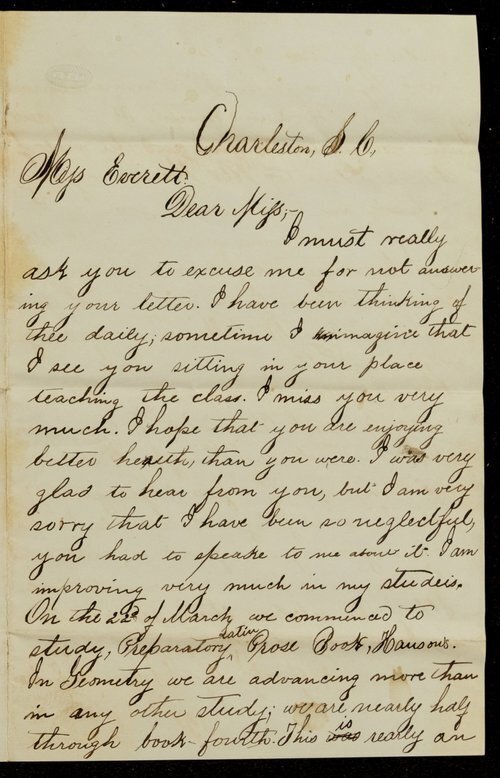 Charleston, S. C.,
Miss Everett.
Dear Miss,-
I must really
ask you to excuse me for not answer-
ing your letter. I have been thinking of
thee daily; sometime I imagine that
I see you sitting in your place
teaching the class. I miss you very
much. I hope that you are enjoying
better health, than you were. I was very
glad to hear from you, but I am very
sorry that I have been so neglectful,
you had to speake to me about it. I am
improving very much in my studeis.
On the 22d of March we commenced to
study, Preparatory Latin Prose Book, Hanson's.
In Geometry we are advancing more than
in any other study; we are nearly half
through book-fourth. This is really an